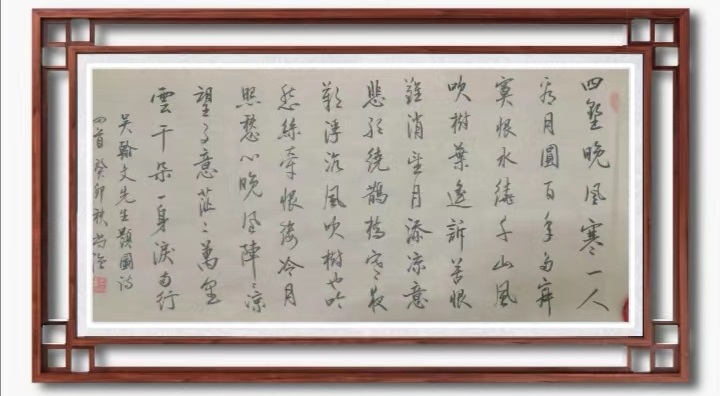 四壑晚風寒一人
看月圓百年多寂
寞恨水繞千山風
吹樹葉遙訴苦恨
難消望月添凉意
悲歌繞鵲橋
浮沉風吹樹也吟
愁絲牽恨海冷月
照愁心晚風陣〻凉
望意茫〻萬里
雲千朵一身淚兩行
吴翰文先生題圖詩
四首癸卯秋尚